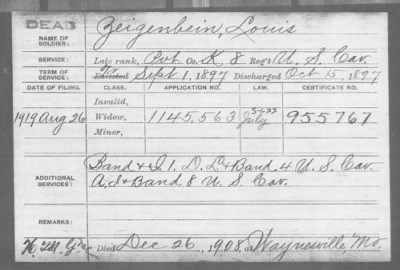 DEAD
NAME OF SOLDIER: Zeigenbein, Louis
SERVICE: Late rank, Pvt Co. K, 8 Reg't U. S. Cav.
TERM OF SERVICE: Enlisted Sept 1, 1897 Discharged Oct 15, 1897
DATE OF FILING. CLASS. APPLICATION NO. LAW. CERTIFICATE NO.
Invalid,
1919 Aug 26 Widow, 1145,563 July 955767
Minor,
ADDITIONAL SERVICES: Band & I. D. L & Band. 4 U. S. Cav.
A, I & Band 8 U. S. Cav.
REMARKS:
Died Dec 26, 1908, at Waynesville, Mo.